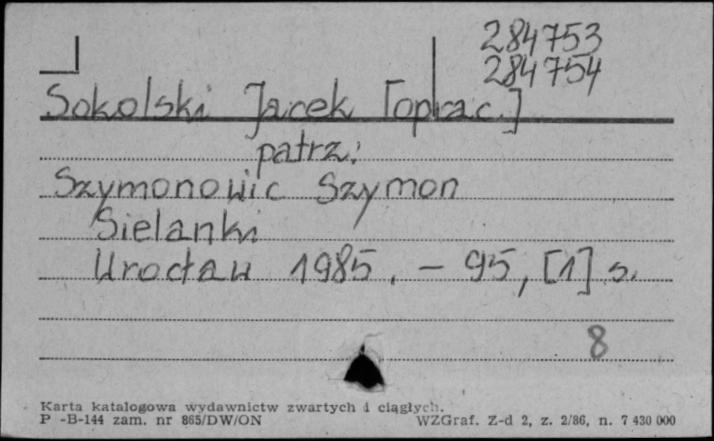 284753
284754
Sokolski Jacek [oprac.]
patrz:
Szymonowic Szymon
Sielanki
Wrocław 1985. - 95, [1] s.
8
Karta katalogowa wydawnictw zwartych i ciągłych.
P -B-144 zam. nr 865/DW/ON WZGraf. Z-d 2, z. 2/86, n. 7 430 000